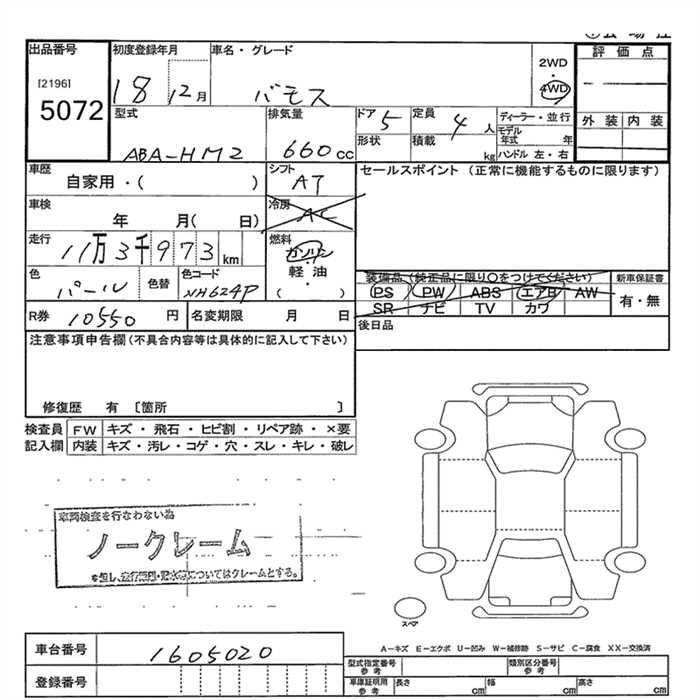 出品番号 初度登録年月 車名・グレード 2WD・4WD 評価点
[2196]
5072
18 12月 バモス
型式 排気量 ドア 5 定員 4人 ディーラー・並行
外装 内装
形状 積載 kg モデル年式 年
ABA-HM2 660cc ハンドル 左・右
車歴 シフト セールスポイント (正常に機能するものに限ります)
自家用・( ) AT
車検 冷房
年 月( 日) AC
走行 燃料
11万3千973km ガソリン・軽油・( )
装備品 (純正品に限り○をつけてください) 新車保証書
色 パール 色替 色コード NH624P
PS PW ABS エアB AW 有・無
SR ナビ TV カワ
R券 10550円 名変期限 月 日
後日品
注意事項申告欄(不具合内容等は具体的に記入して下さい)
修復歴 有 〔箇所 〕
検査員 FW キズ・飛石・ヒビ割・リペア跡・×要
記入欄 内装 キズ・汚レ・コゲ・穴・スレ・キレ・破レ
車両検査を行なわない為
ノークレーム
スペア
A-キズ E-エクボ U-凹み W-補修跡 S-サビ C-腐食 XX-交換済
車台番号 1605020
型式指定番号 参考 類別区分番号 参考
登録番号
車庫証明用 参考 長さ cm 幅 cm 高さ cm